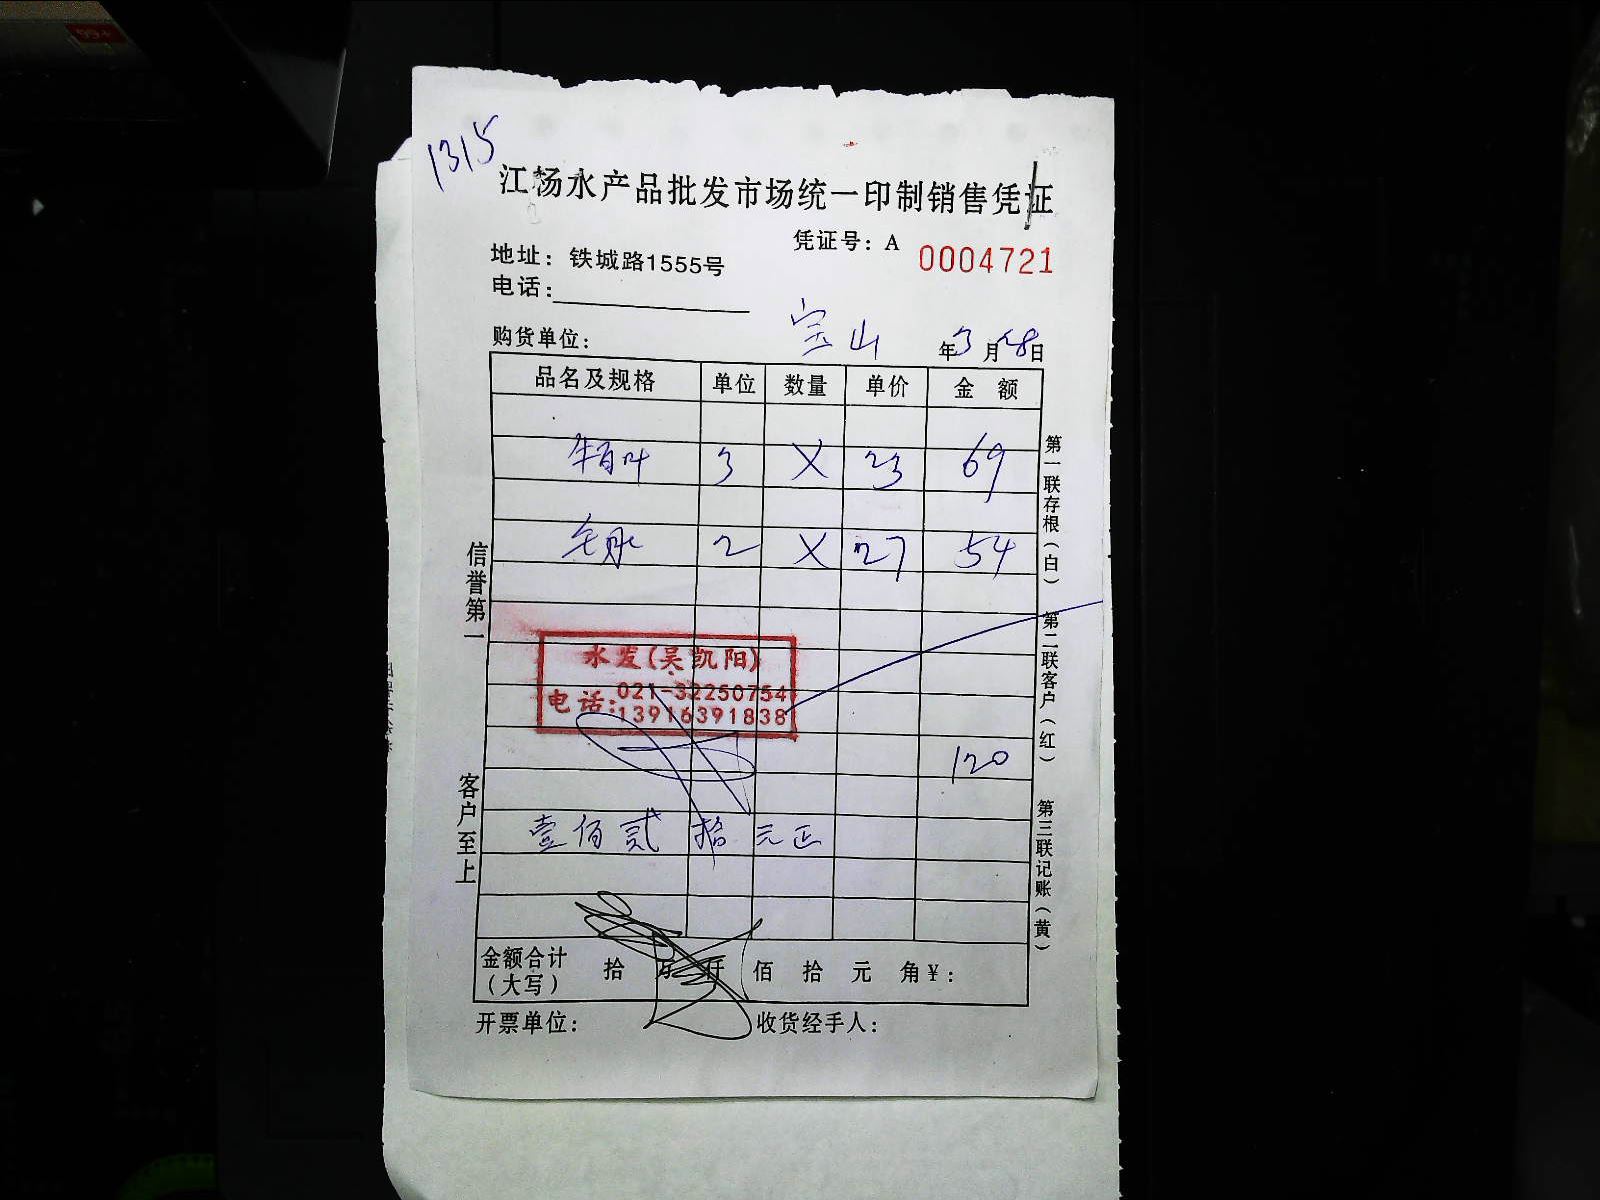 99+
1315
江杨水产品批发市场统一印制销售凭证
凭证号：A 0004721
地址：铁城路1555号
电话：
购货单位： 宝山 年3月28日
品名及规格 单位 数量 单价 金 额
牛百叶 3 X 23 69
毛肚 2 X 27 54
水发(吴凯阳)
电话：021-32250754
13916391838
120
壹佰贰拾元正
金额合计（大写） 拾 万 仟 佰 拾 元 角 ¥：
开票单位： 收货经手人：
信誉第一
客户至上
第一联存根（白）
第二联客户（红）
第三联记账（黄）